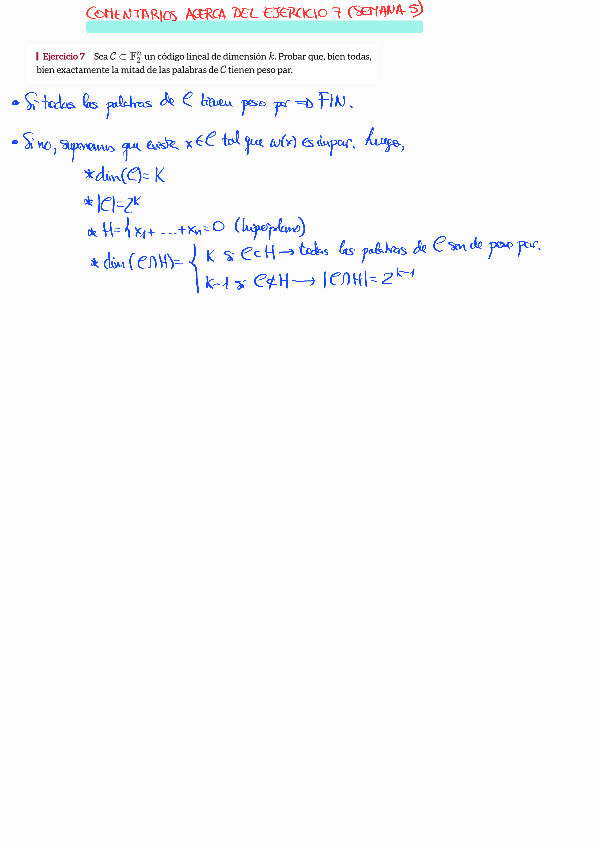 COMENTARIOS ACERCA DEL EJERCICIO 7 (SEMANA 5)
Ejercicio 7 Sea C ⊂ F₂ⁿ un código lineal de dimensión k. Probar que, bien todas,
bien exactamente la mitad de las palabras de C tienen peso par.
• Si todas las palabras de C tienen peso par ⇒ FIN.
• Si no, supongamos que existe x∈C tal que w(x) es impar. Luego,
* dim(C)= K
* |C|=2ᴷ
* H={x₁+ ...+xₙ=0 (hiperplano)
* dim(C∩H)= { K si C⊂H → todas las palabras de C son de peso par.
K-1 si C⊄H → |C∩H|= 2ᵏ⁻¹